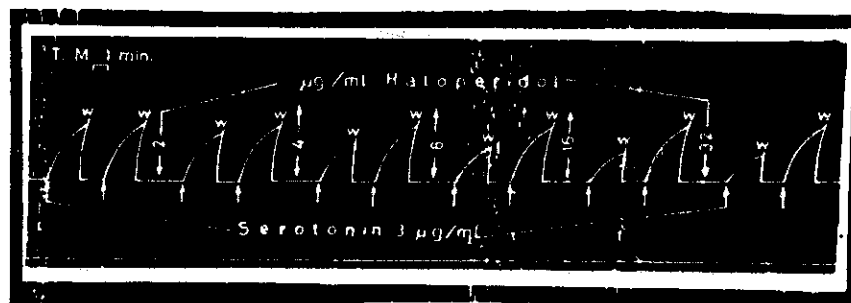 T. M 1 min.
µg/ml Haloperidol
W W W W W W W W W W W W
2 4 8 16 32
Serotonin 3 µg/mL